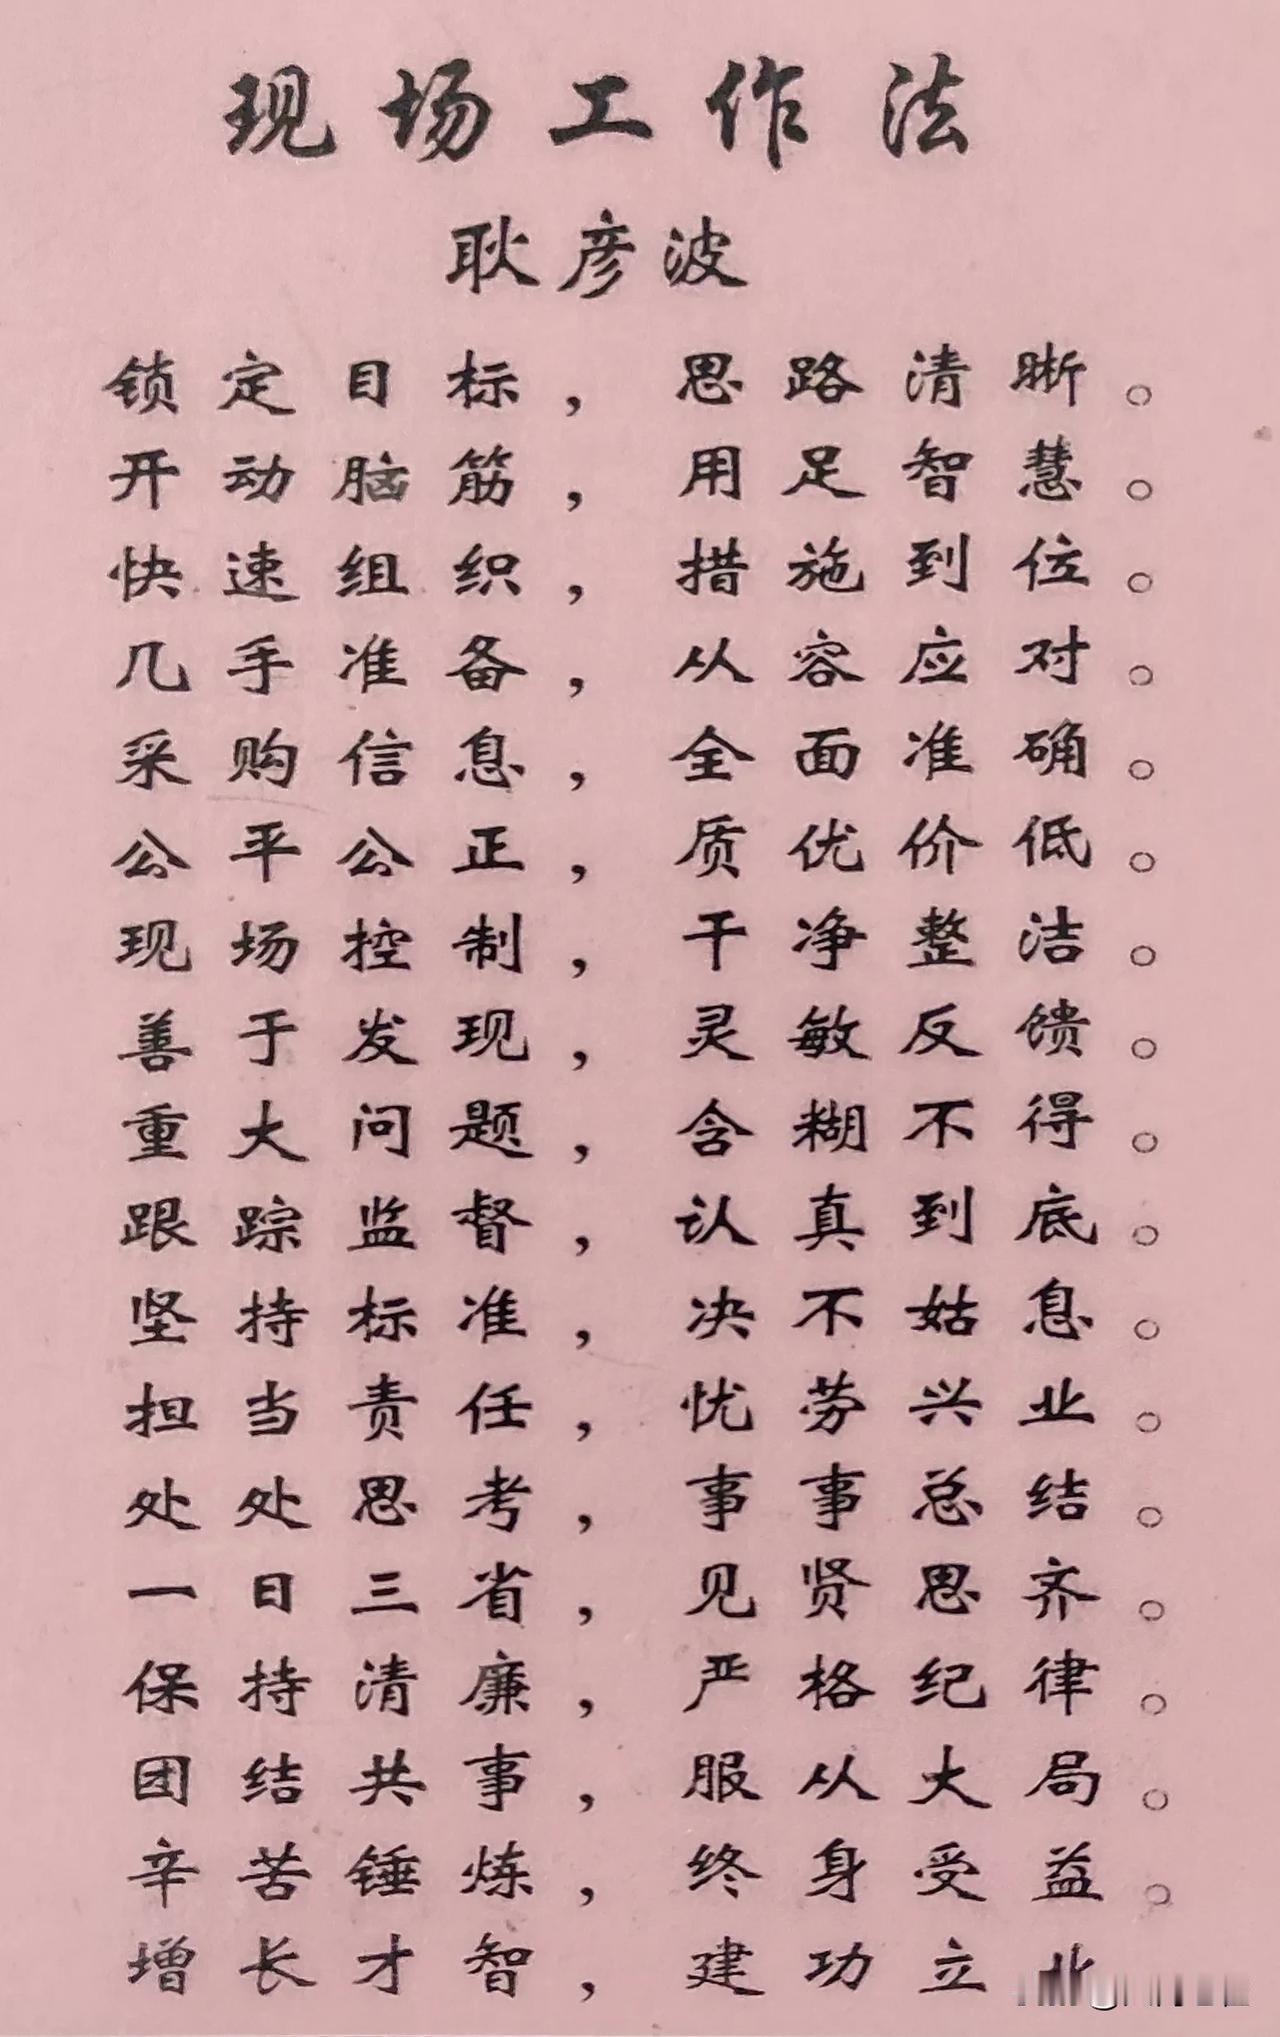 现场工作法
耿彦波
锁定目标，思路清晰。
开动脑筋，用足智慧。
快速组织，措施到位。
几手准备，从容应对。
采购信息，全面准确。
公平公正，质优价低。
现场控制，干净整洁。
善于发现，灵敏反馈。
重大问题，含糊不得。
跟踪监督，认真到底。
坚持标准，决不姑息。
担当责任，忧劳兴业。
处处思考，事事总结。
一日三省，见贤思齐。
保持清廉，严格纪律。
团结共事，服从大局。
辛苦锤炼，终身受益。
增长才智，建功立